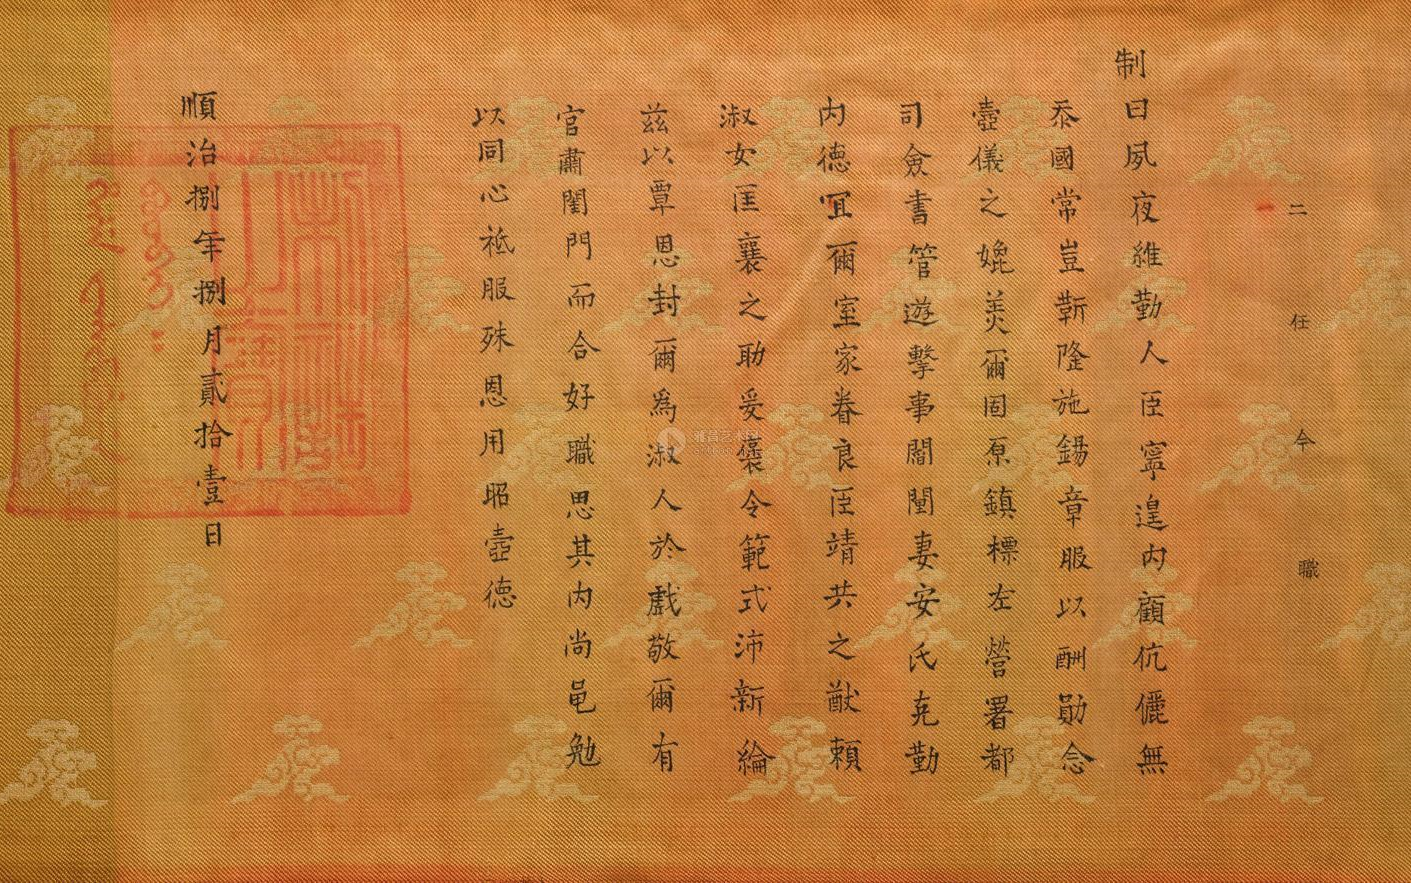 二任今職
制曰夙夜維勤人臣寧遑內顧伉儷無
忝國常豈靳隆施錫章服以酬勛念
壼儀之媲美爾固原鎮標左營署都
司僉書管遊擊事閻閏妻安氏克勤
內德冝爾室家眷良臣靖共之猷賴
淑女匡襄之助爰褒令範式沛新綸
兹以覃恩封爾為淑人於戲敬爾有
官肅閨門而合好職思其內尚黽勉
以同心祗服殊恩用昭壼德
順治捌年捌月貳拾壹日
制誥之寶